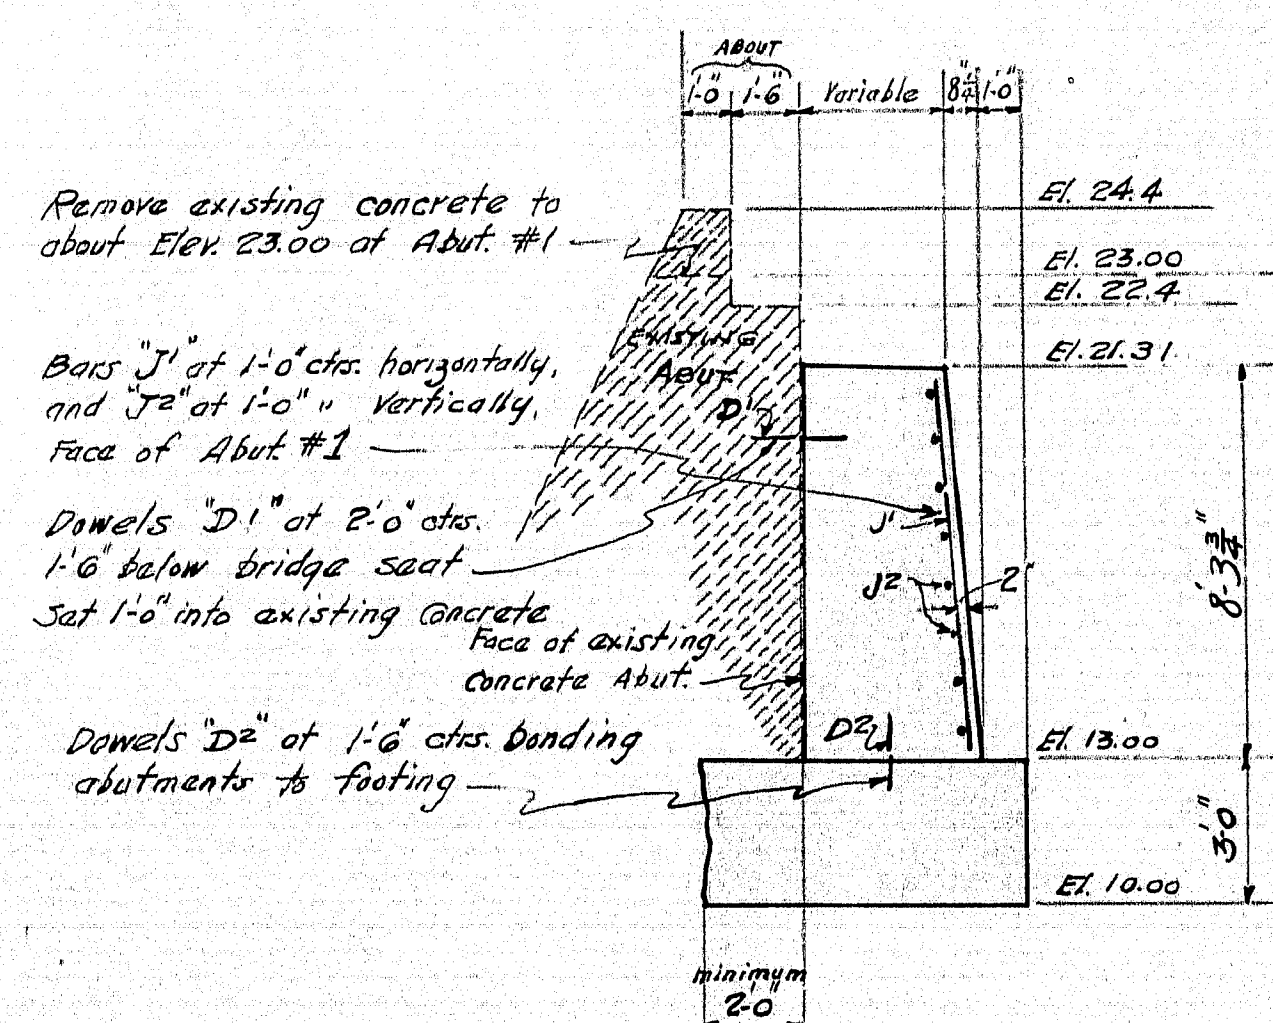 ABOUT
1'-0" 1'-6" Variable 8¼" 1'-0"
El. 24.4
Remove existing concrete to
about Elev. 23.00 at Abut. #1
El. 23.00
El. 22.4
EXISTING
ABUT.
El. 21.31
Bars "J1" at 1'-0" ctrs. horizontally,
and "J2" at 1'-0" " vertically,
Face of Abut. #1
D1
Dowels "D1" at 2'-0" ctrs.
1'-6" below bridge seat
Set 1'-0" into existing Concrete
J1
J2
2"
8'-3¾"
Face of existing
Concrete Abut.
Dowels "D2" at 1'-6" ctrs. bonding
abutments to footing
D2
El. 13.00
3'-0"
El. 10.00
minimum
2'-0"